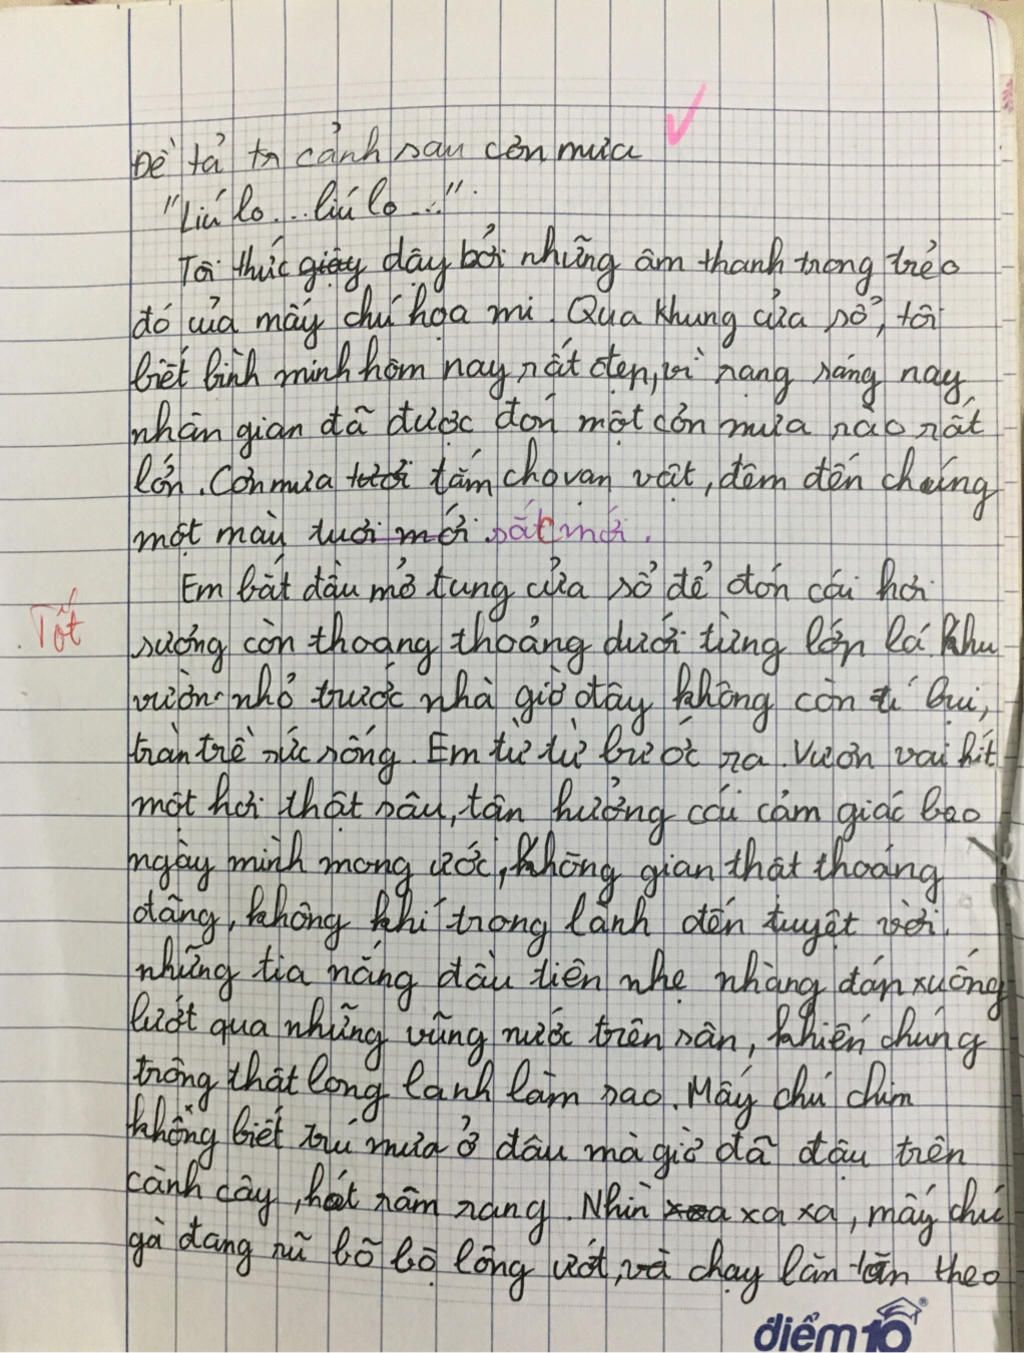 Đề tả tr cảnh sau cơn mưa
"Líu lo...líu lo..."
Tôi thức giậy dậy bởi những âm thanh trong trẻo
đó của mấy chú họa mi. Qua khung cửa sổ, tôi
biết bình minh hôm nay rất đẹp, vì rạng sáng nay
nhân gian đã được đón một cơn mưa rào rất
lớn. Cơn mưa tưới tắm cho vạn vật, đêm đến chúng
một màu tươi mới. sắc mới.
Em bắt đầu mở tung cửa sổ để đón cái hơi
Tốt
sương còn thoang thoảng dưới từng lớp lá. Khu
vườn nhỏ trước nhà giờ đây không còn tí bụi,
tràn trề sức sống. Em từ từ bước ra. Vươn vai hít
một hơi thật sâu, tận hưởng cái cảm giác bao
ngày mình mong ước, không gian thật thoáng
đãng, không khí trong lành đến tuyệt vời.
những tia nắng đầu tiên nhẹ nhàng đáp xuống
lướt qua những vũng nước trên sân, khiến chúng
trông thật long lanh làm sao. Mấy chú chim
không biết trú mưa ở đâu mà giờ đã đậu trên
cành cây, hát râm rang. Nhìn xa xa, mấy chú
gà đang rũ bõ bộ lông ướt, và chạy lăn tăn theo
điểm 10